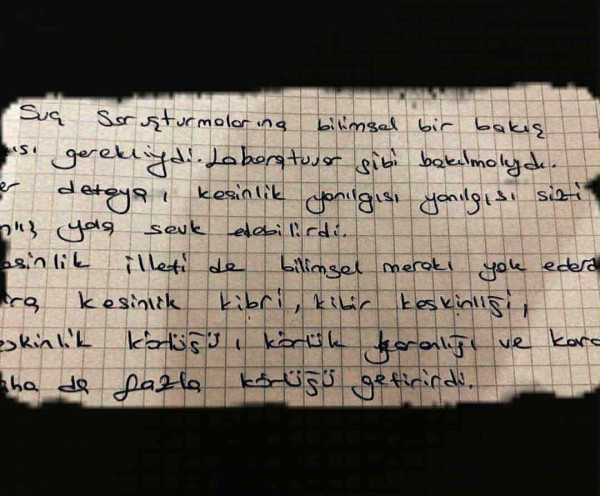 Suç Soruşturmalarına bilimsel bir bakış
ısı gerekliydi. Laboratuvar gibi bakılmalıydı.
er detaya, kesinlik yanılgısı yanılgısı sizi
nlış yola sevk edebilirdi.
esinlik illeti de bilimsel merakı yok eder
ra kesinlik kibri, kibir keskinliği,
eskinlik körlüğü, körlük karanlığı ve kara
aha da fazla körlüğü getirirdi.